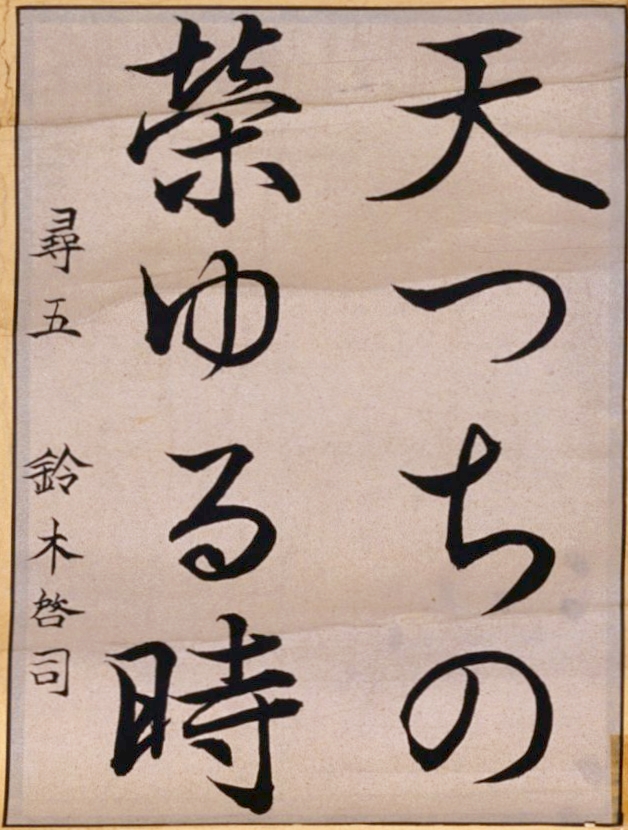 天つちの
榮ゆる時
尋五 鈴木啓司